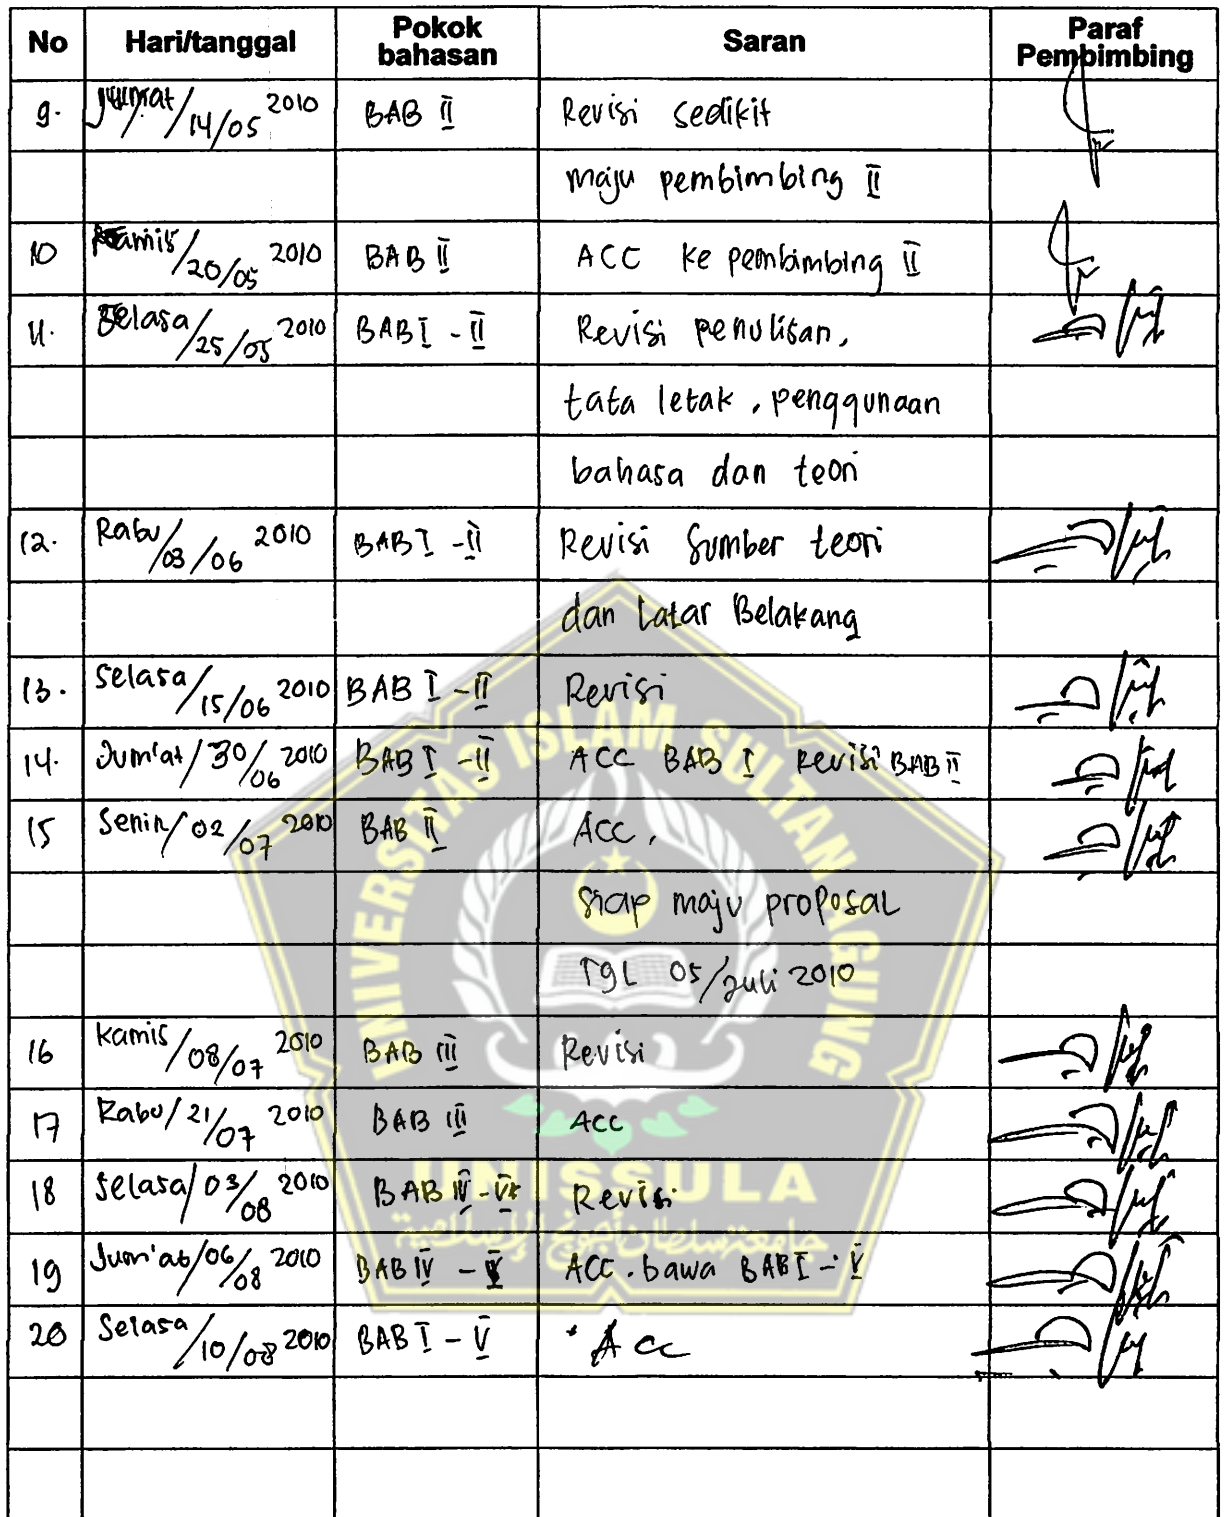 No Hari/tanggal Pokok bahasan Saran Paraf Pembimbing
9. Jum'at/14/05 2010 BAB II Revisi sedikit
maju pembimbing II
10 Kamis/20/05 2010 BAB II ACC ke pembimbing II
11. Selasa/25/05 2010 BAB I - II Revisi penulisan,
tata letak, penggunaan
bahasa dan teori
12. Rabu/03/06 2010 BAB I - II Revisi Sumber teori
dan Latar Belakang
13. Selasa/15/06 2010 BAB I - II Revisi
14. Jum'at/30/06 2010 BAB I - II ACC BAB I Revisi BAB II
15 Senin/02/07 2010 BAB II ACC,
Siap maju proposal
Tgl 05/Juli 2010
16 Kamis/08/07 2010 BAB III Revisi
17 Rabu/21/07 2010 BAB III ACC
18 Selasa/03/08 2010 BAB IV - V Revisi
19 Jum'at/06/08 2010 BAB IV - V ACC. bawa BAB I - V
20 Selasa/10/08 2010 BAB I - V Acc
UNIVERSITAS ISLAM SULTAN AGUNG
UNISSULA
جامعة سلطان أجونج الإسلامية